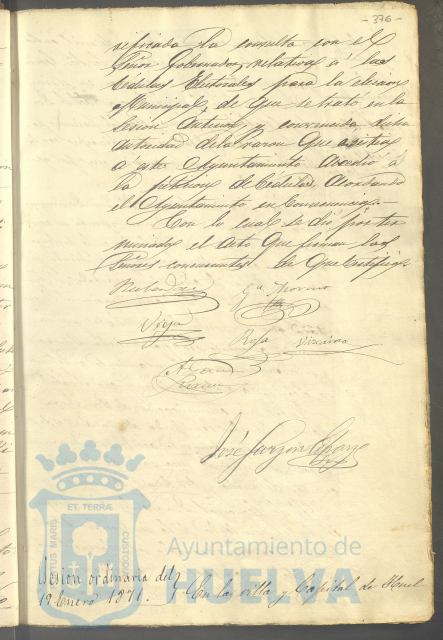 - 376 -
rificada la consulta con el
Señor Gobernador relativa á las
Cédulas Electorales para la eleccion
Municipal, de que se trató en la
Sesion anterior y convencida dicha
autoridad de la razon que asistia
á este Ayuntamiento accedió á
la peticion de Cedulas, acordando
el Ayuntamiento en consecuencia.
Con lo cual se dió por ter
minado el acto que firman los
Señores concurrentes de que Certifico.
Gª Moreno
Vega
Rosa Vizcaino
José Garzón
ET TERRÆ
PORTUS MARIS
CUSTODIA
Ayuntamiento de
HUELVA
Sesion ordinaria del
19 Enero 1871. En la villa y Capital de Huel